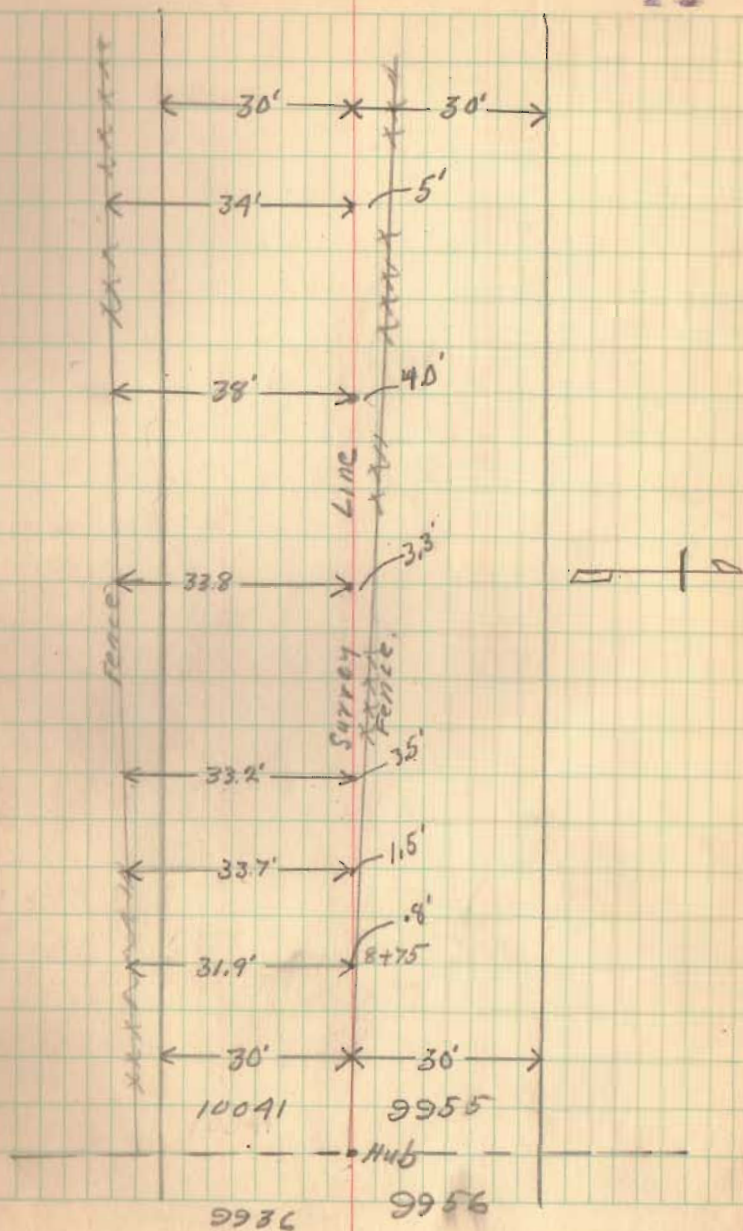 30' 30'
34' 5'
38' 4.0'
Line
33.8 3.3'
Fence
Survey
Fence.
33.2' 35'
33.7' 1.5'
.8'
31.9' 8+75
30' 30'
10041 9955
Hub
9936 9956